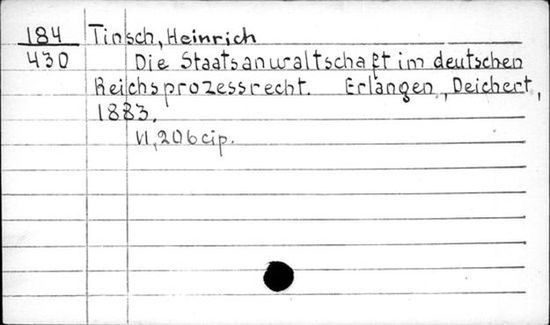 184 Tinsch, Heinrich
430 Die Staatsanwaltschaft im deutschen
Reichsprozessrecht. Erlangen, Deichert,
1883.
VI, 206 cip.